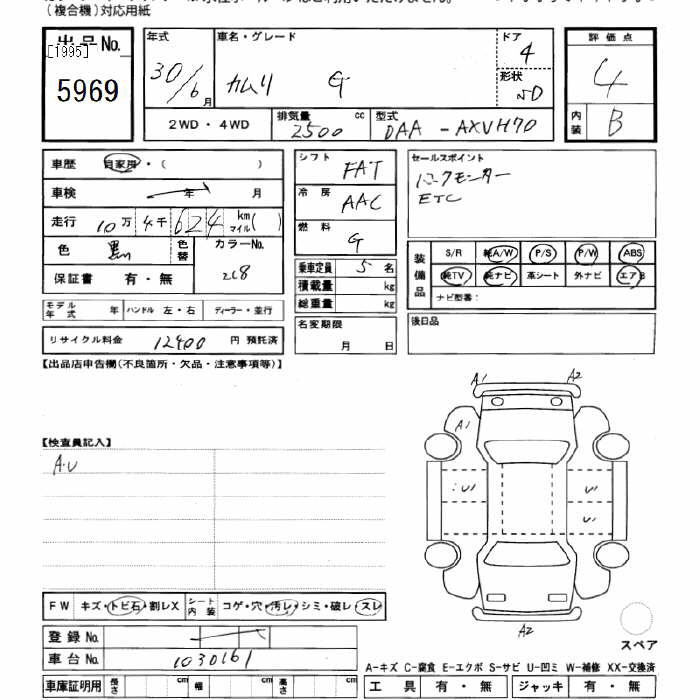 (複合機)対応用紙
出品No.
[1995]
5969
年式 車名・グレード ドア 4
30/6月 カムリ G 形状 SD
2WD・4WD 排気量 2500 cc 型式 DAA-AXVH70
評価点 4
内装 B
車歴 自家用・( )
車検 年 月
走行 10万4千624 km マイル( )
色 黒 色替 カラーNo. 218
保証書 有・無
モデル年式 年 ハンドル 左・右 ディーラー・並行
リサイクル料金 12400 円 預託済
シフト FAT
冷房 AAC
燃料 G
乗車定員 5 名
積載量 kg
総重量 kg
名変期限 月 日
セールスポイント
ETC
装備品 S/R 純A/W P/S P/W ABS
純TV 純ナビ 革シート 外ナビ エアB
ナビ型番:
後日品
【出品店申告欄(不良箇所・欠品・注意事項等)】
【検査員記入】
A・U
A1 A2
A1
U1 U1
U1
A2
スペア
FW キズ・トビ石・割レX シート内装 コゲ・穴・汚レ・シミ・破レ・スレ
登録No.
車台No. 1030161
車庫証明用 長さ cm 幅 cm 高さ cm
A-キズ C-腐食 E-エクボ S-サビ U-凹ミ W-補修 XX-交換済
工具 有・無 ジャッキ 有・無